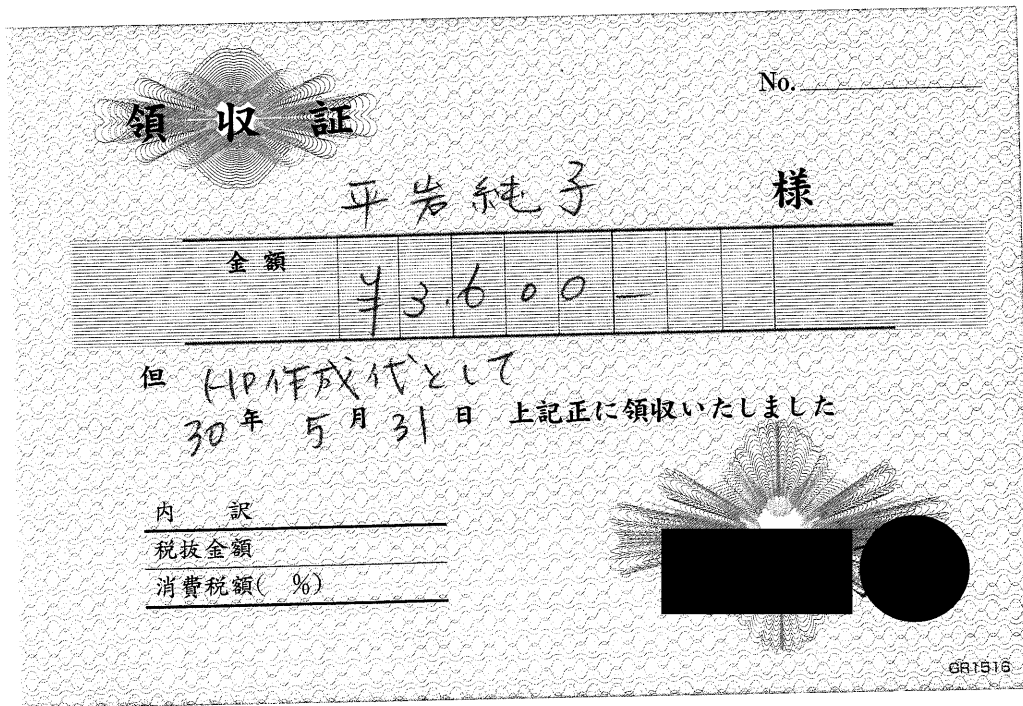 領収証
No.
平岩純子 様
金額 ¥3.600-
但 HP作成代として
30年 5月 31日 上記正に領収いたしました
内 訳
税抜金額
消費税額( %)
GR1516